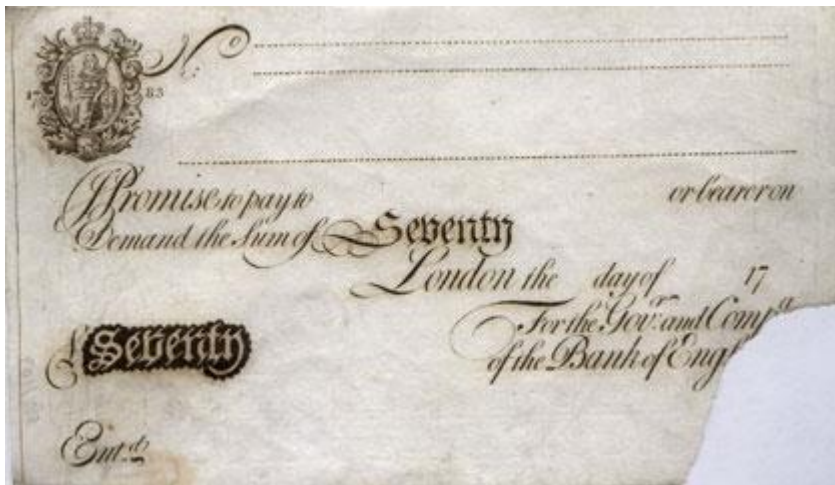 No
17 83
I Promise to pay to or bearer on
Demand the Sum of Seventy
London the day of 17
For the Govr. and Compa
of the Bank of Engl
£ Seventy
Entd.